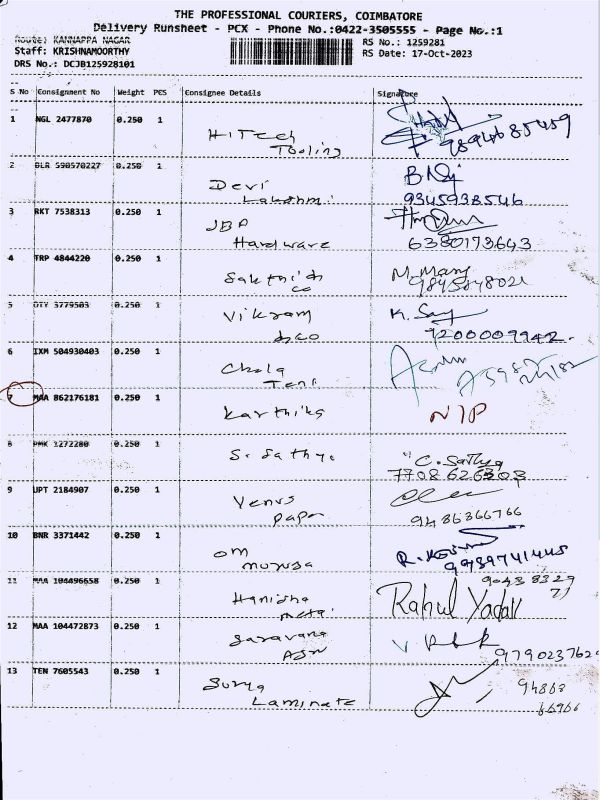 THE PROFESSIONAL COURIERS, COIMBATORE
Delivery Runsheet - PCX - Phone No.:0422-3505555 - Page No.:1
Route: KANNAPPA NAGAR
RS No.: 1259281
Staff: KRISHNAMOORTHY
RS Date: 17-Oct-2023
DRS No.: DCJB125928101
S No Consignment No Weight PCS Consignee Details Signature
1 NGL 2477870 0.250 1
HiTech
Tooling
9894685459
2 BLR 598570227 0.250 1
Devi
Lakshmi
9345938546
3 RKT 7538313 0.250 1
JBP
Hardware
6380173643
4 TRP 4844220 0.250 1
Sakthi
co
M. Mary
9845848021
5 OTY 3779503 0.250 1
Vikram
&co
K. Say
9200009942.
6 IXM 504930403 0.250 1
Chola
7 MAA 862176181 0.250 1
Karthika
NIP
8 PMK 1272280 0.250 1
S. Sathya
C. Sathya
7708626303
9 UPT 2184907 0.250 1
Venus
papr
9486366766
10 BNR 3371442 0.250 1
om
muruga
11 MAA 104496658 0.250 1
Hanisha
metal
Rahul Yadav
90438329
71
12 MAA 104472873 0.250 1
Saravana
979023762
13 TEN 7605543 0.250 1
Surya
Laminate
94868
66966